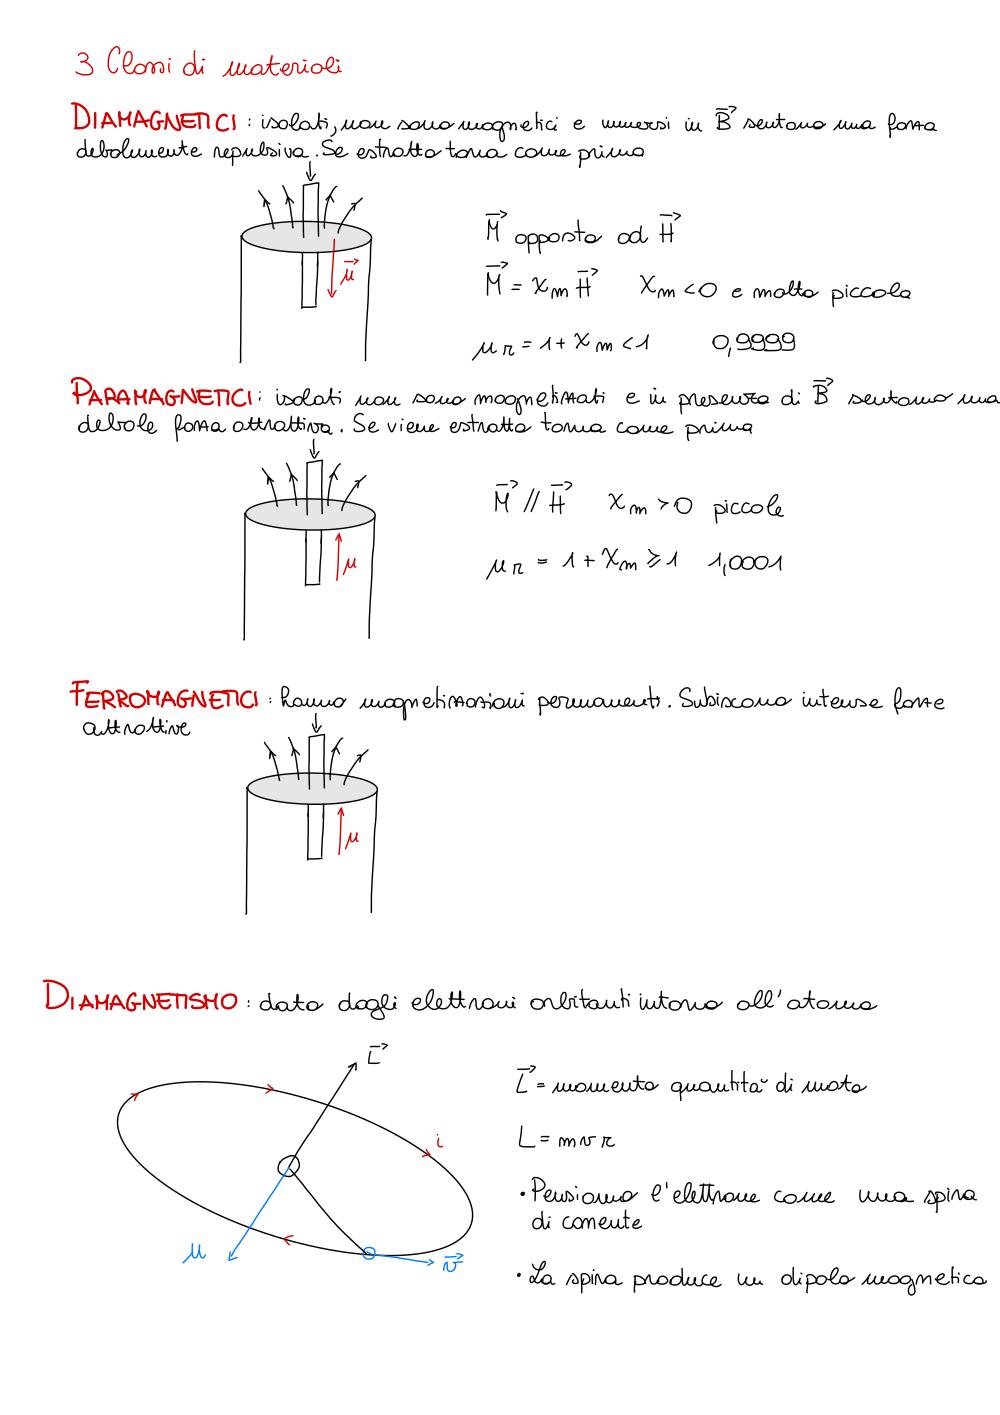 3 Classi di materiali
DIAMAGNETICI : isolati, non sono magnetici e immersi in B⃗ sentono una forza
debolmente repulsiva. Se estratto torna come prima
μ⃗
M⃗ opposto ad H⃗
M⃗ = χm H⃗ χm <0 e molto piccola
μr = 1+ χm <1 0,9999
PARAMAGNETICI : isolati non sono magnetizzati e in presenza di B⃗ sentono una
debole forza attrattiva. Se viene estratto torna come prima
μ
M⃗ // H⃗ χm >0 piccole
μr = 1 + χm ⩾ 1 1,0001
FERROMAGNETICI : hanno magnetizzazioni permanenti. Subiscono intense forze
attrattive
μ
DIAMAGNETISMO : dato dagli elettroni orbitanti intorno all'atomo
L⃗
i
μ
v⃗
L⃗ = momento quantità di moto
L = m v r
• Pensiamo l'elettrone come una spira
di corrente
• La spira produce un dipolo magnetico